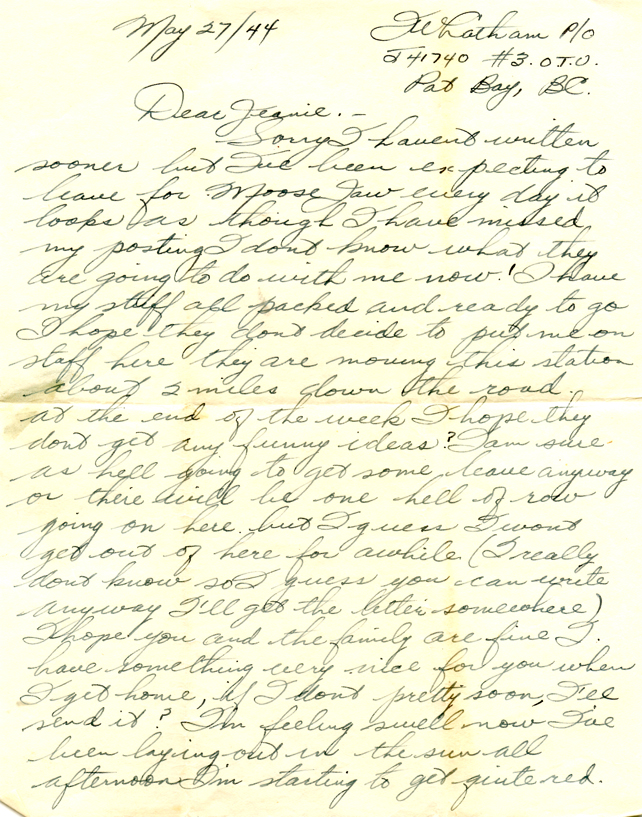 May 27/44
J W Chatham P/O
J41740 #3. O.T.U.
Pat Bay, BC.
Dear Jeanie. -
Sorry I havent written
sooner but I've been expecting to
leave for Moose Jaw every day it
loops as though I have missed
my posting I dont know what they
are going to do with me now! I have
my stuff all packed and ready to go
I hope they dont decide to put me on
staff here they are moving this station
about 2 miles down the road.
at the end of the week I hope they
dont get any funny ideas? I am sure
as hell going to get some leave anyway
or there will be one hell of row
going on here. but I guess I wont
get out of here for awhile (I really
dont know so I guess you can write
anyway I'll get the letter somewhere)
I hope you and the family are fine I.
have something very nice for you when
I get home, if I dont pretty soon, I'll
send it? I'm feeling swell now I've
been laying out in the sun all
afternoon I'm starting to get qiute red.